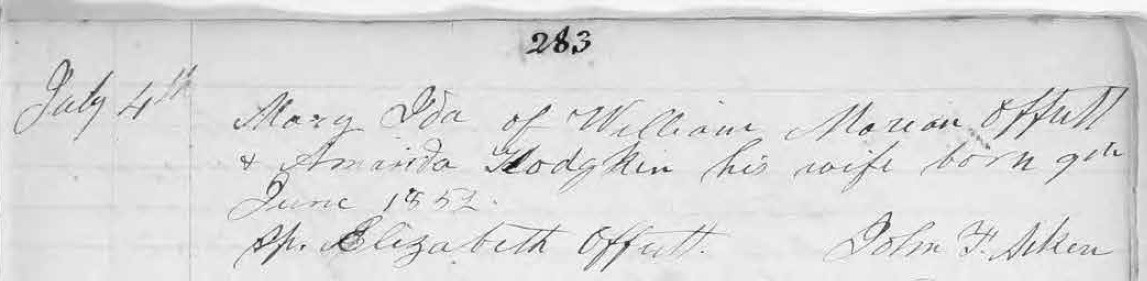 283
July 4th
Mary Ida of William Marian Offutt
& Aminda Hodgkin his wife born 9th
June 1852.
sp. Elizabeth Offutt. John F. Aiken